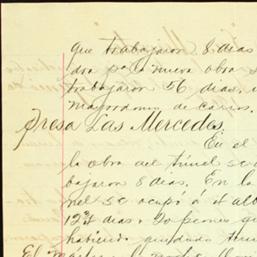 que trabajaron 8 dias
dra para la nueva obra
trabajaron 56 dias,
mayordomo de carros.
Presa Las Mercedes.
En el
la obra del túnel se
bajaron 8 dias. En la
nel se ocupó á 1 alb
12¾ dias y 20 peones que
habiendo quedado
El m